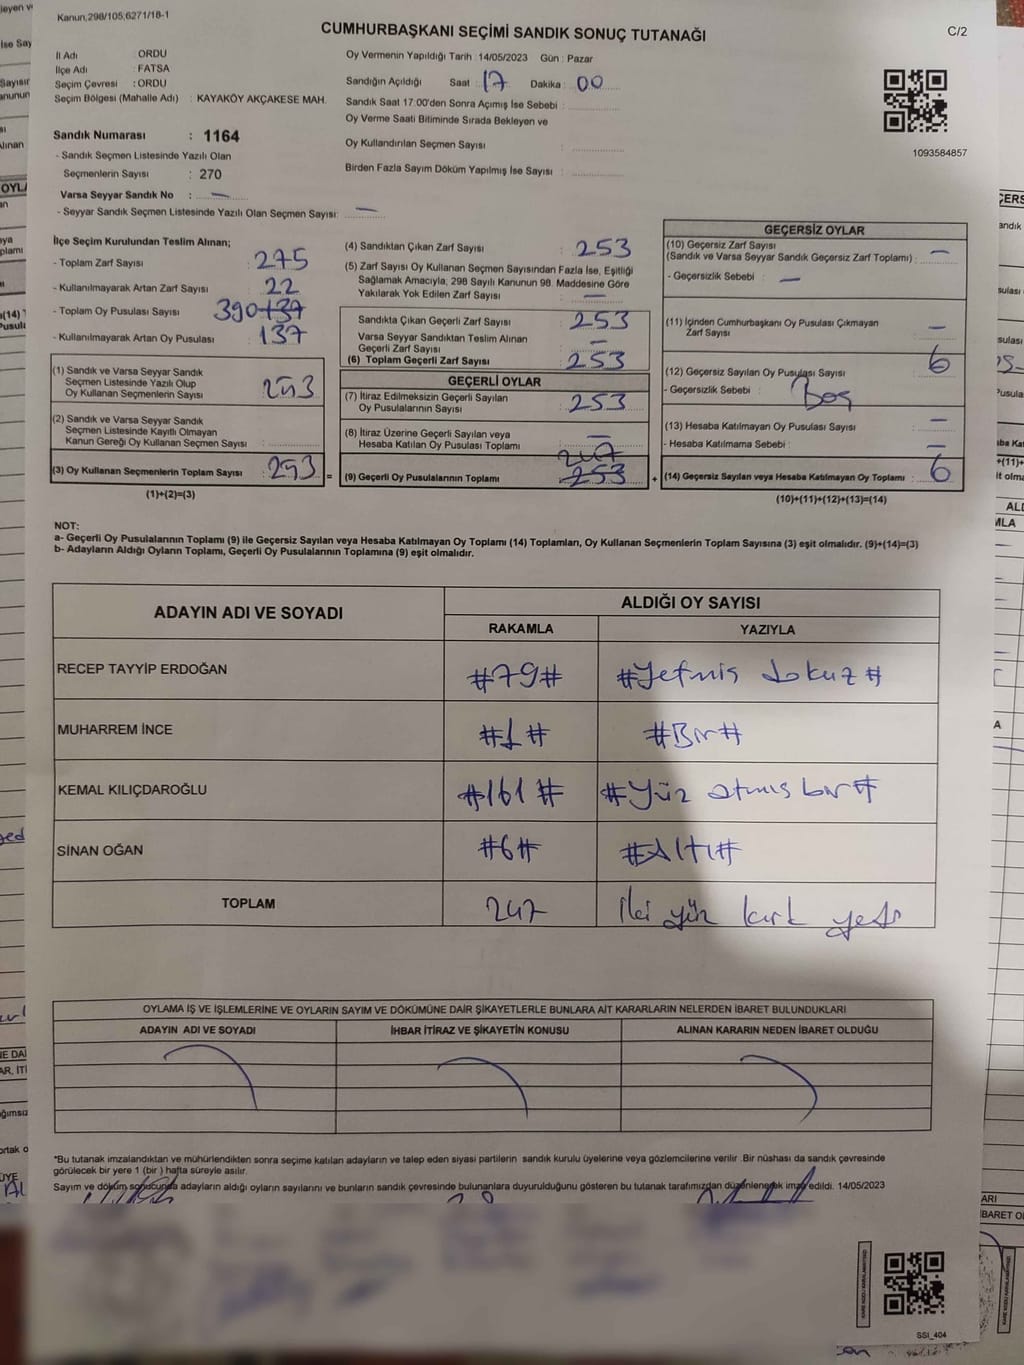 Kanun,298/105,6271/18-1
CUMHURBAŞKANI SEÇİMİ SANDIK SONUÇ TUTANAĞI
C/2
İl Adı : ORDU
İlçe Adı : FATSA
Seçim Çevresi : ORDU
Seçim Bölgesi (Mahalle Adı) : KAYAKÖY AKÇAKESE MAH.
Oy Vermenin Yapıldığı Tarih : 14/05/2023 Gün : Pazar
Sandığın Açıldığı Saat : 17 Dakika : 00
Sandık Saat 17:00'den Sonra Açımış İse Sebebi :
Oy Verme Saati Bitiminde Sırada Bekleyen ve
Oy Kullandırılan Seçmen Sayısı :
Birden Fazla Sayım Döküm Yapılmış İse Sayısı :
1093584857
Sandık Numarası : 1164
- Sandık Seçmen Listesinde Yazılı Olan
Seçmenlerin Sayısı : 270
Varsa Seyyar Sandık No : —
- Seyyar Sandık Seçmen Listesinde Yazılı Olan Seçmen Sayısı: —
İlçe Seçim Kurulundan Teslim Alınan;
- Toplam Zarf Sayısı : 275
- Kullanılmayarak Artan Zarf Sayısı : 22
- Toplam Oy Pusulası Sayısı : 390 137
- Kullanılmayarak Artan Oy Pusulası : 137
(1) Sandık ve Varsa Seyyar Sandık
Seçmen Listesinde Yazılı Olup
Oy Kullanan Seçmenlerin Sayısı : 253
(2) Sandık ve Varsa Seyyar Sandık
Seçmen Listesinde Kayıtlı Olmayan
Kanun Gereği Oy Kullanan Seçmen Sayısı :
(3) Oy Kullanan Seçmenlerin Toplam Sayısı : 253 =
(1)+(2)=(3)
(4) Sandıktan Çıkan Zarf Sayısı : 253
(5) Zarf Sayısı Oy Kullanan Seçmen Sayısından Fazla İse, Eşitliği
Sağlamak Amacıyla, 298 Sayılı Kanunun 98. Maddesine Göre
Yakılarak Yok Edilen Zarf Sayısı : —
Sandıkta Çıkan Geçerli Zarf Sayısı : 253
Varsa Seyyar Sandıktan Teslim Alınan
Geçerli Zarf Sayısı : —
(6) Toplam Geçerli Zarf Sayısı : 253
GEÇERLİ OYLAR
(7) İtiraz Edilmeksizin Geçerli Sayılan
Oy Pusulalarının Sayısı : 253
(8) İtiraz Üzerine Geçerli Sayılan veya
Hesaba Katılan Oy Pusulası Toplamı : —
247
(9) Geçerli Oy Pusulalarının Toplamı : 253 +
GEÇERSİZ OYLAR
(10) Geçersiz Zarf Sayısı
(Sandık ve Varsa Seyyar Sandık Geçersiz Zarf Toplamı) : —
- Geçersizlik Sebebi : —
(11) İçinden Cumhurbaşkanı Oy Pusulası Çıkmayan
Zarf Sayısı : —
(12) Geçersiz Sayılan Oy Pusulası Sayısı : 6
- Geçersizlik Sebebi : Boş
(13) Hesaba Katılmayan Oy Pusulası Sayısı : —
- Hesaba Katılmama Sebebi : —
(14) Geçersiz Sayılan veya Hesaba Katılmayan Oy Toplamı : 6
(10)+(11)+(12)+(13)=(14)
NOT:
a- Geçerli Oy Pusulalarının Toplamı (9) ile Geçersiz Sayılan veya Hesaba Katılmayan Oy Toplamı (14) Toplamları, Oy Kullanan Seçmenlerin Toplam Sayısına (3) eşit olmalıdır. (9)+(14)=(3)
b- Adayların Aldığı Oyların Toplamı, Geçerli Oy Pusulalarının Toplamına (9) eşit olmalıdır.
ADAYIN ADI VE SOYADI ALDIĞI OY SAYISI
RAKAMLA YAZIYLA
RECEP TAYYİP ERDOĞAN #79# #Yetmiş dokuz#
MUHARREM İNCE #1# #Bir#
KEMAL KILIÇDAROĞLU #161# #Yüz atmış bir#
SİNAN OĞAN #6# #Altı#
TOPLAM 247 İki yüz kırk yedi
OYLAMA İŞ VE İŞLEMLERİNE VE OYLARIN SAYIM VE DÖKÜMÜNE DAİR ŞİKAYETLERLE BUNLARA AİT KARARLARIN NELERDEN İBARET BULUNDUKLARI
ADAYIN ADI VE SOYADI İHBAR İTİRAZ VE ŞİKAYETİN KONUSU ALINAN KARARIN NEDEN İBARET OLDUĞU
*Bu tutanak imzalandıktan ve mühürlendikten sonra seçime katılan adayların ve talep eden siyasi partilerin sandık kurulu üyelerine veya gözlemcilerine verilir. Bir nüshası da sandık çevresinde
görülecek bir yere 1 (bir) hafta süreyle asılır.
Sayım ve döküm sonucunda adayların aldığı oyların sayılarını ve bunların sandık çevresinde bulunanlara duyurulduğunu gösteren bu tutanak tarafımızdan düzenlenerek imza edildi. 14/05/2023
SSİ_404